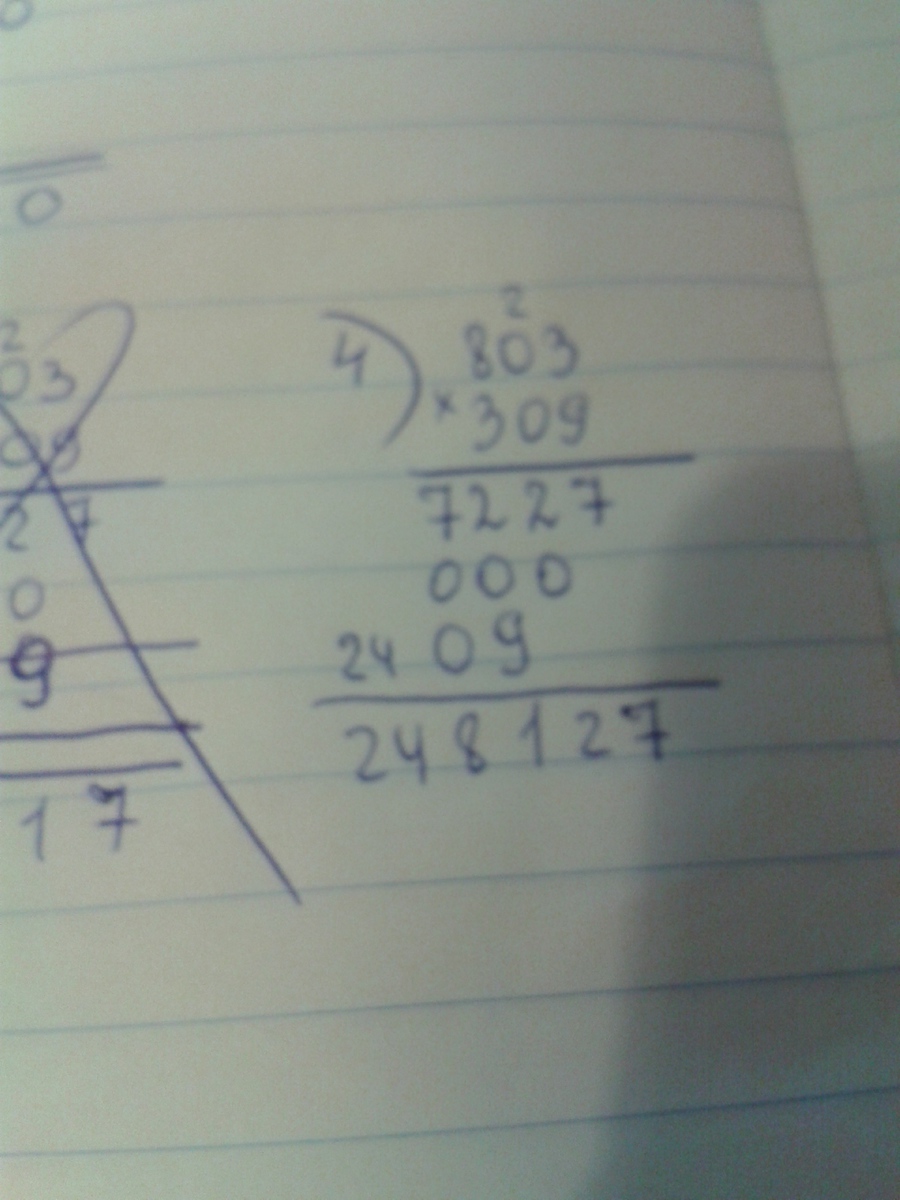 0
0
2
03
09
27
0
9
17
2
4) 803
× 309
7227
000
2409
248127